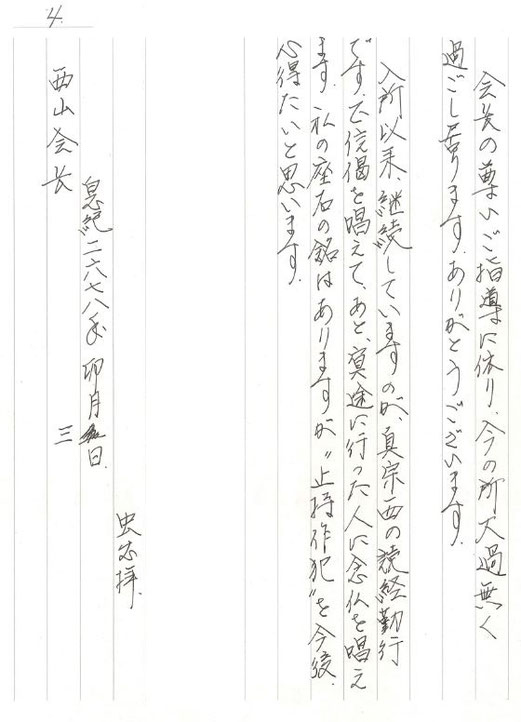 4.
会長の尊いご指導に依り、今の所大過無く
過ごし居ります。ありがとうございます。
入所以来、継続していますのが、真宗西の読経勤行
です。正信偈を唱えて、あと、冥途に行った人に念仏を唱え
ます。私の座右の銘はありますが〝止持作犯〟を今後、
心得たいと思います。
忠志拝.
皇紀二六七八年 卯月 日.
三
西山会長